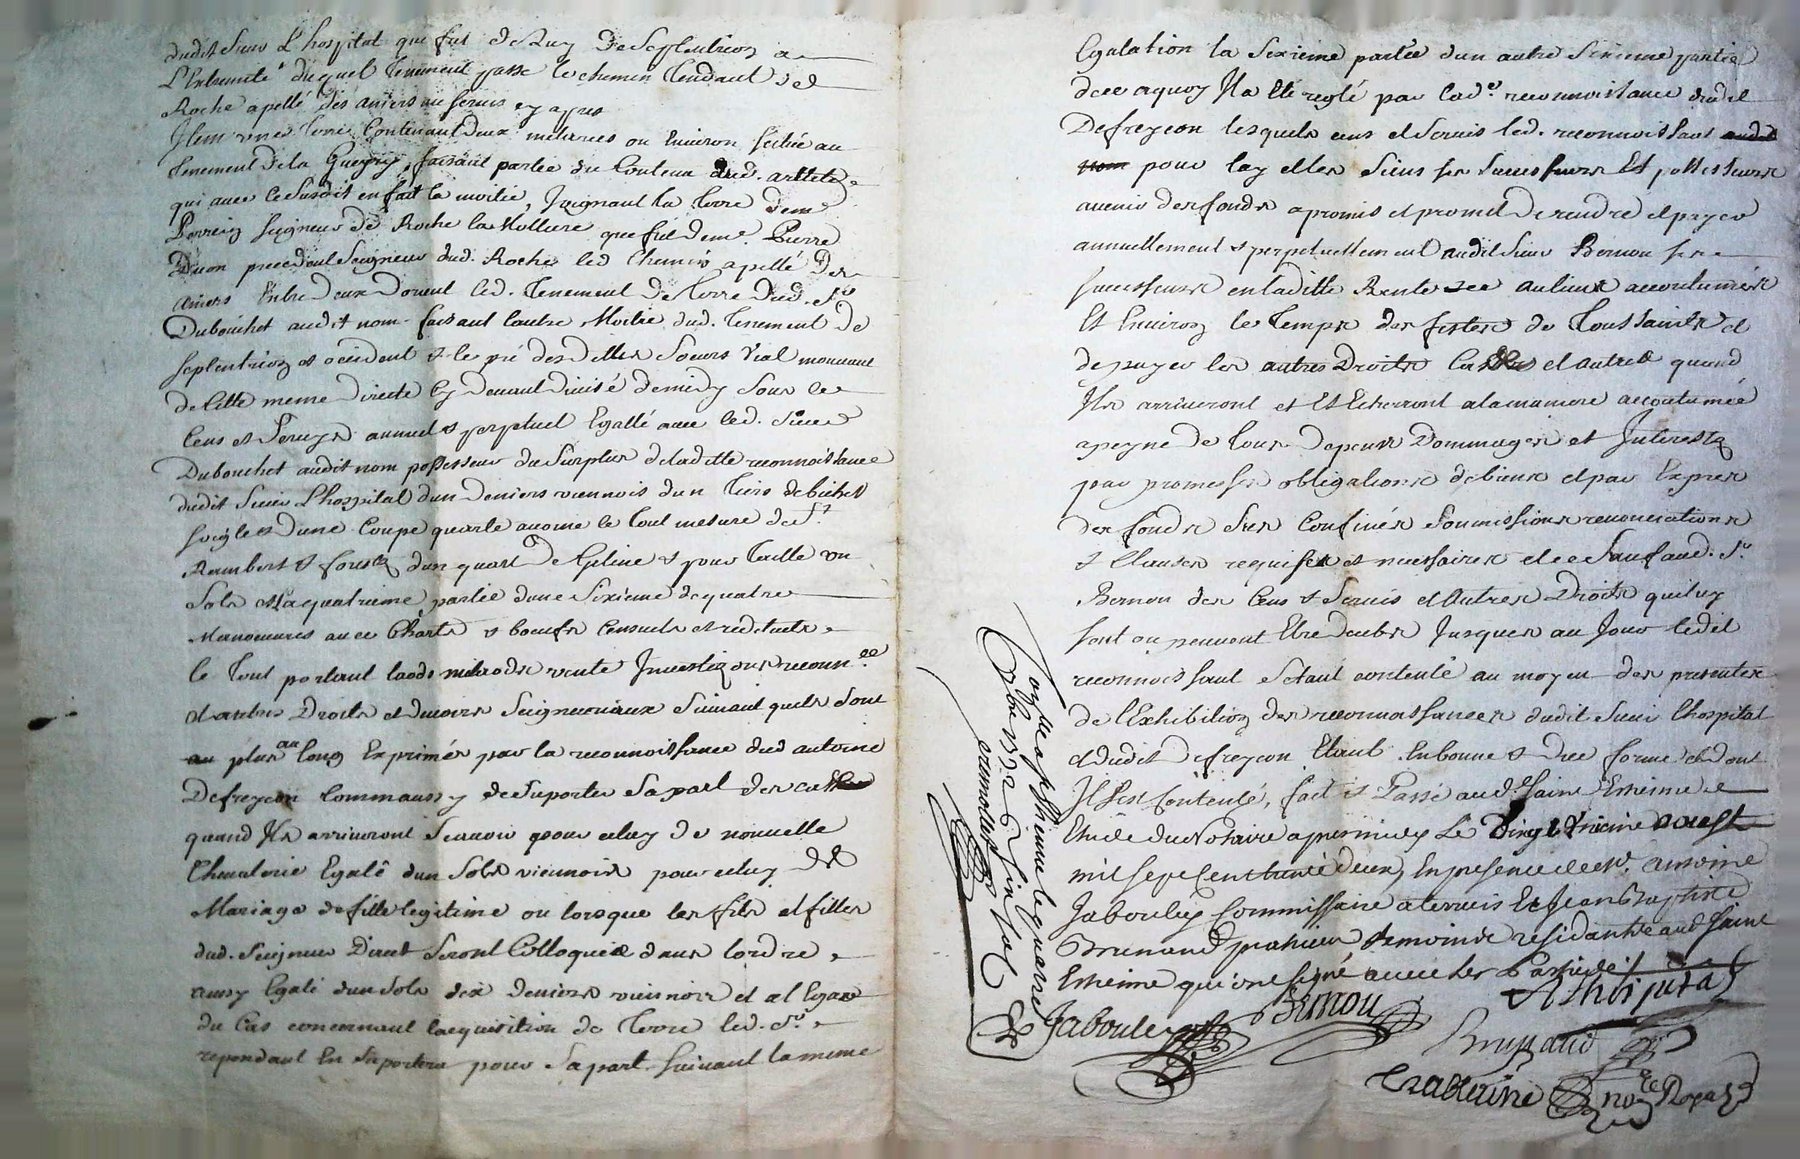 dudit Sieur L'hospital que fut de Luy de Septentrion a
L'Extremité duquel Tenement passe le chemin Tendant de
Roche apellé des aniers au Servis cy apres
Item une Terre Contenant deux mestures ou Environ scituée au
Tenement de la faisant partie du Contenu dud. article
qui avec le Susdit en fait la moitié, Joignant la Terre dem.e
Perrein Seigneur de Roche la Molliere que fut de m.e Pierre
precedent Seigneur dud. Roche led. Chemin apellé Des
aniers Entre Deux Dorient led. Tenement de Terre dud. S.r
Dubouchet audit nom faisant l'autre Moitié dud. Tenement de
septentrion et occident & le pré des dittes Soeurs Vial mouvant
de Cette meme Directe Cy devant divisé de midy Sous le
Cens et Servis annuel & perpetuel Egallé avec led. Sieur
Dubouchet audit nom possesseur du Surplus de laditte reconnoissance
dudit Sieur L'hospital d'un Deniers viennois d'un Tiers de bichet
seigle & d'une Coupe quarte avoine le Tout mesure de S.t
Rambert & forestz d'un quart de Geline & pour Taille un
Sols et la quatrieme partie d'une Sixieme de quatre
Manoeuvres avec Chars & boeufs Censuels et redituels
le Tout portant laods milaods vente Investizons reconn.ce
et autres Droits et devoirs Seigneuriaux Suivant quils Sont
au plus au long Exprimés par la reconnoissance dud antoine
Defreycon Comme aussy de Suporter Sa part des cas
quand Ils arriveront Scavoir pour celuy de nouvelle
Chevalerie Egalé d'un Sols viennois pour celuy de
Mariage de fille legitime ou lorsque les fils et filles
dud. Seigneur Direct Seront Colloquée dans lordre
aussy Egalé d'un Sols dix deniers viennois et a l'Egard
du Cas concernant l'acquisition de Terre led. S.r
repondant En Suportera pour Sa part Suivant la meme
Egalation la Sixieme partie d'un autre Sixieme partie
dcee aquoy Il a Eté reglé par lad.e reconnoissance dudit
Defreycon lesquels cens et Servis led. reconnoissant audit
nom pour luy et les Siens ses Successeurs Et possesseurs
avenir des fonds a promis et promet de rendre et payer
annuellement & perpetuellement audit Sieur Bernou ses
successeurs en laditte Rente aux lieux accoutumés
Et Environ le Temps des festes de Toussaints et
de payer les autres Droits Casuels et autres quand
Ils arriveront et Et Echerront a la maniere accoutumée
a peyne de Tous depens Dommages et Interests
par promesses obligations de biens et par Expres
des fonds Sus Confinés Soumissions renonciations
& Clauses requises et necessaires et ce Sauf aud. S.r
Bernou des Cens & Servis et autres Droits qui luy
sont ou peuvent Etre deubs Jusques au Jour ledit
reconnoissant Setant contenté au moyen des presentes
de l'Exhibition des reconnoissances dudit Sieur Lhospital
et dudit Defreycon Etant En bonne & due forme et dont
Il Sest Contenté, fait et Passé aud. Saint Etienne
Etude du Notaire apres midy Le Vingt Troisieme aoust
mil sept cent trente deux, En presence de M.r antoine
Jabouley Commissaire a terriers Et Jean Baptiste
Brunand praticien temoins residants aud. Saint
Etienne qui ont signé avec les Parties./.
Bernou
Jabouley
Brunand
Not.re Royal